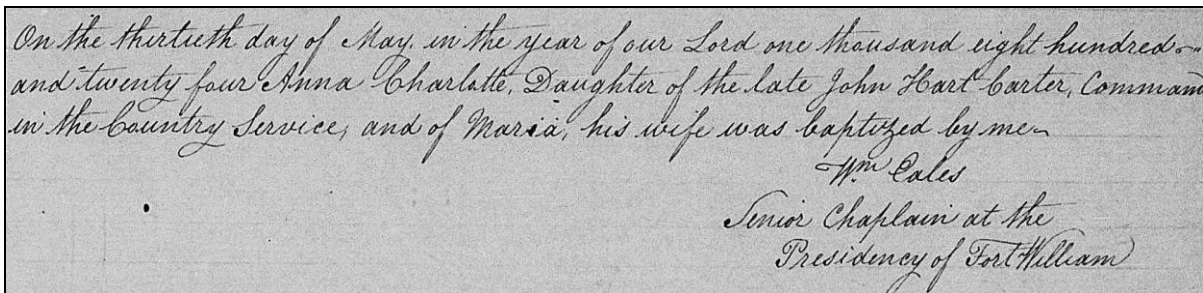 On the thirtieth day of May. in the year of our Lord one thousand eight hundred
and twenty four Anna Charlotte, Daughter of the late John Hart Carter, Command
in the Country Service, and of Maria, his wife was baptized by me
Wm Eales
Senior Chaplain at the
Presidency of Fort William